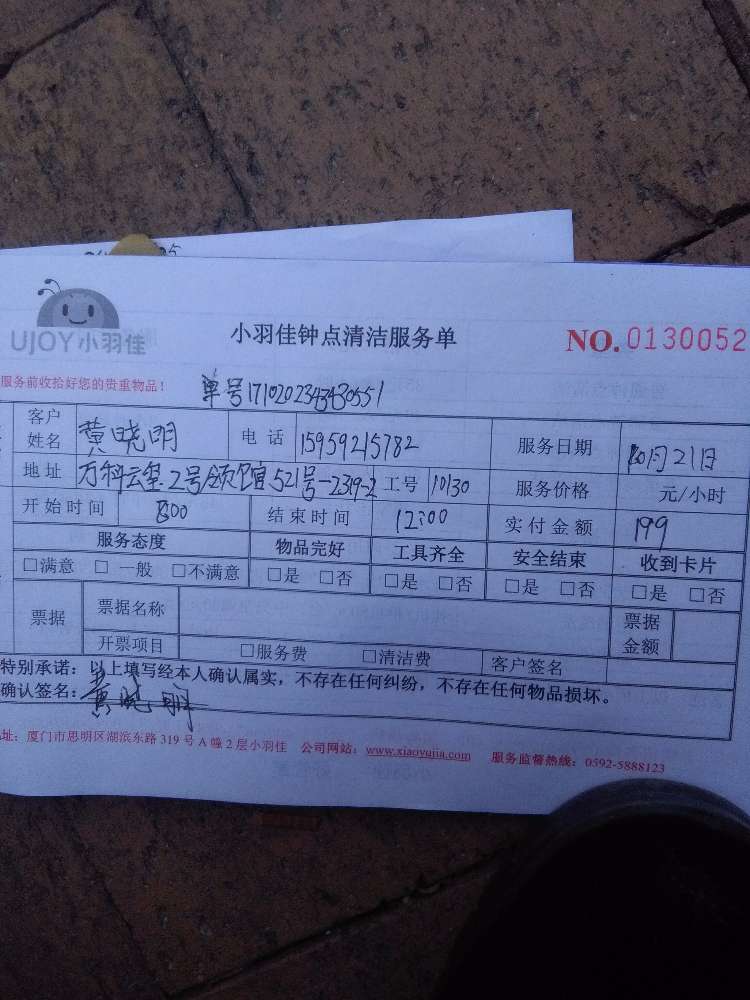 UJOY小羽佳
小羽佳钟点清洁服务单
NO. 0130052
服务前收拾好您的贵重物品！
单号1710202343430551
客户姓名 黄晓明 电话 15959215782 服务日期 10月21日
地址 万科云玺.2号领馆.521号-2319-2 工号 10130 服务价格 元/小时
开始时间 8:00 结束时间 12:00 实付金额 199
服务态度 物品完好 工具齐全 安全结束 收到卡片
□满意 □一般 □不满意 □是 □否 □是 □否 □是 □否 □是 □否
票据 票据名称 票据金额
开票项目 □服务费 □清洁费 客户签名
特别承诺：以上填写经本人确认属实，不存在任何纠纷，不存在任何物品损坏。
确认签名：黄晓明
址：厦门市思明区湖滨东路319号A幢2层小羽佳 公司网站：www.xiaoyujia.com 服务监督热线：0592-5888123